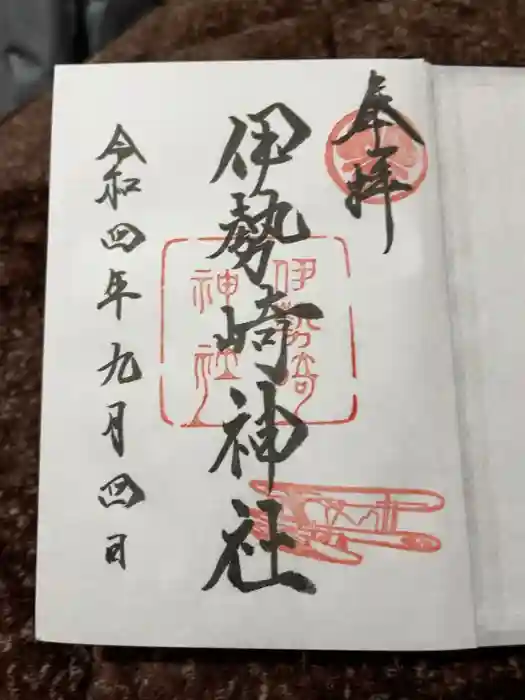 奉拝
伊勢崎神社
伊勢崎
神社
令和四年九月四日